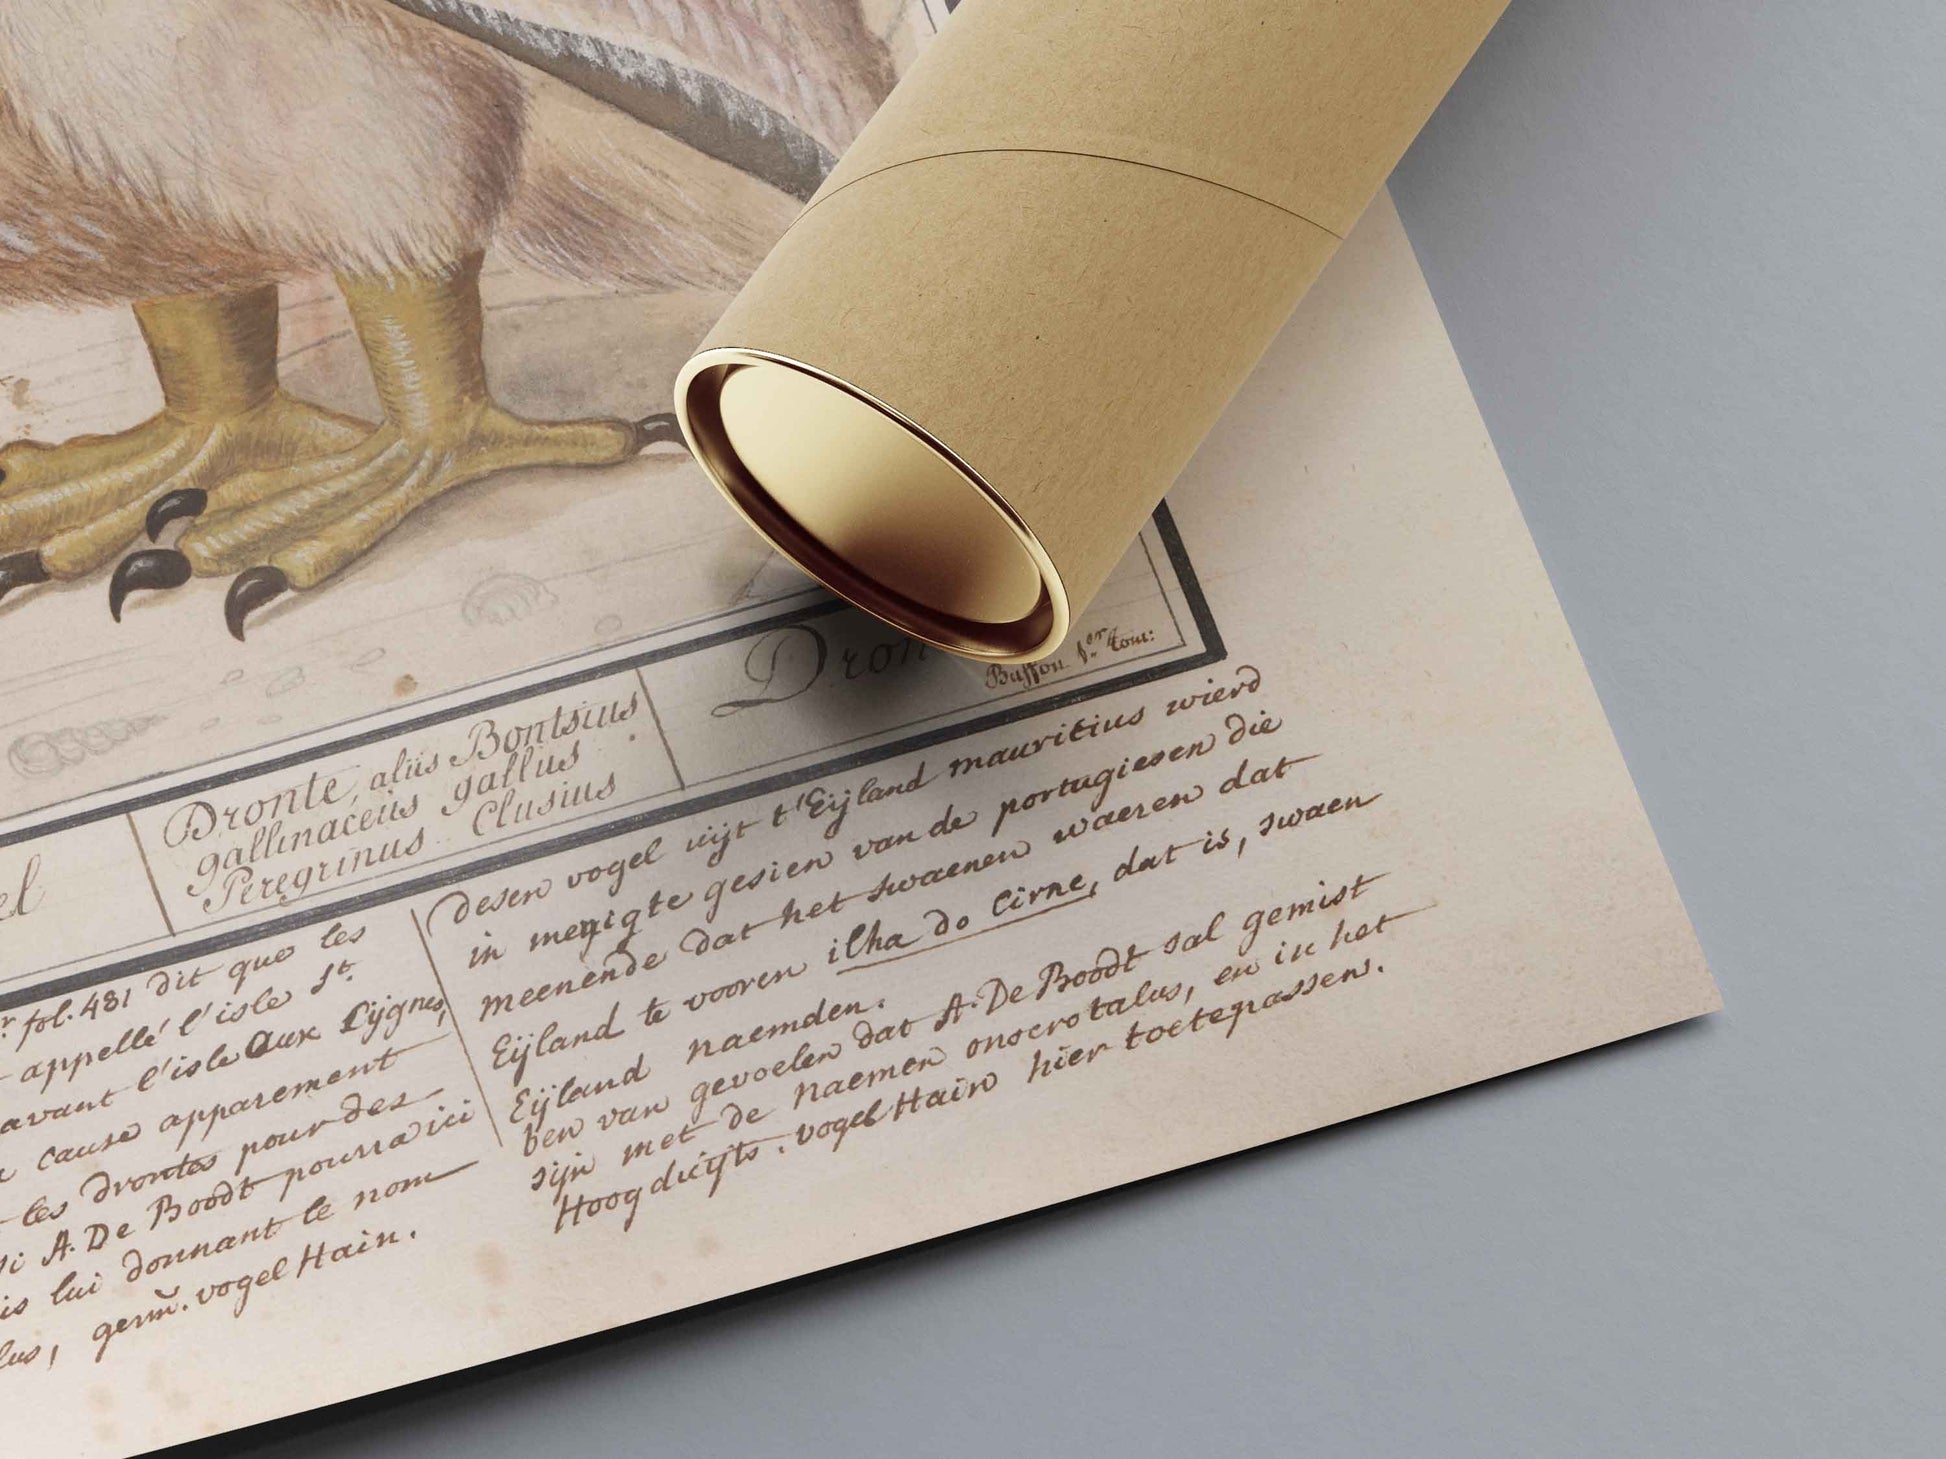 el
Dronte, aliis Bontsius
gallinaceus gallus
Peregrinus. Clusius
Dron
Buffon 1.er Tom:
r. fol. 481 dit que les
appellé l'isle St.
avant l'isle Aux Cijgnes,
cause apparement
les drontes pour des
A. De Boodt pourra ici
is lui donnant le nom
lus, germ. vogel Hain.
Desen vogel uijt t'Eijland mauritius wierd
in menigte gesien van de portugiesen die
meenende dat het swaenen waeren dat
Eijland te vooren ilha do Cirne, dat is, swaen
Eijland naemden.
ben van gevoelen dat A. De Boodt sal gemist
sijn met de naemen onocrotalus, en in het
Hoog duijts. vogel Hain hier toetepassen.